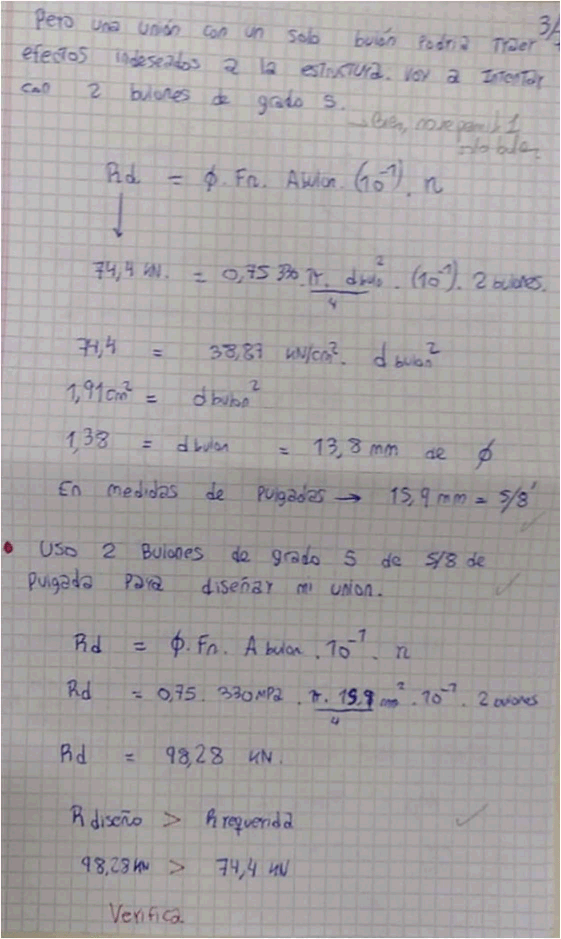 3/
Pero una unión con un solo bulón podria traer
efectos indeseados a la estructura. Voy a Intentar
con 2 bulones de grado 5.
→ Bien, no se permite 1
solo bulon
Rd = ϕ. Fn. Abulon. (10⁻¹). n
↓
74,4 KN. = 0,75 330. π. dbulo² / 4 . (10⁻¹). 2 bulones.
74,4 = 38,87 KN/cm². d bulon²
1,91 cm² = dbulon²
1,38 = dbulon = 13,8 mm de ϕ
En medidas de Pulgadas → 15,9 mm = 5/8'
• Uso 2 Bulones de grado 5 de 5/8 de
Pulgada Para diseñar mi union.
Rd = ϕ. Fn. A bulon. 10⁻¹. n
Rd = 0,75. 330 MPa. π. 15,9 mm² / 4 . 10⁻¹. 2 bulones
Rd = 98,28 KN.
R diseño > R requerida
98,28 KN > 74,4 KN
Verifica